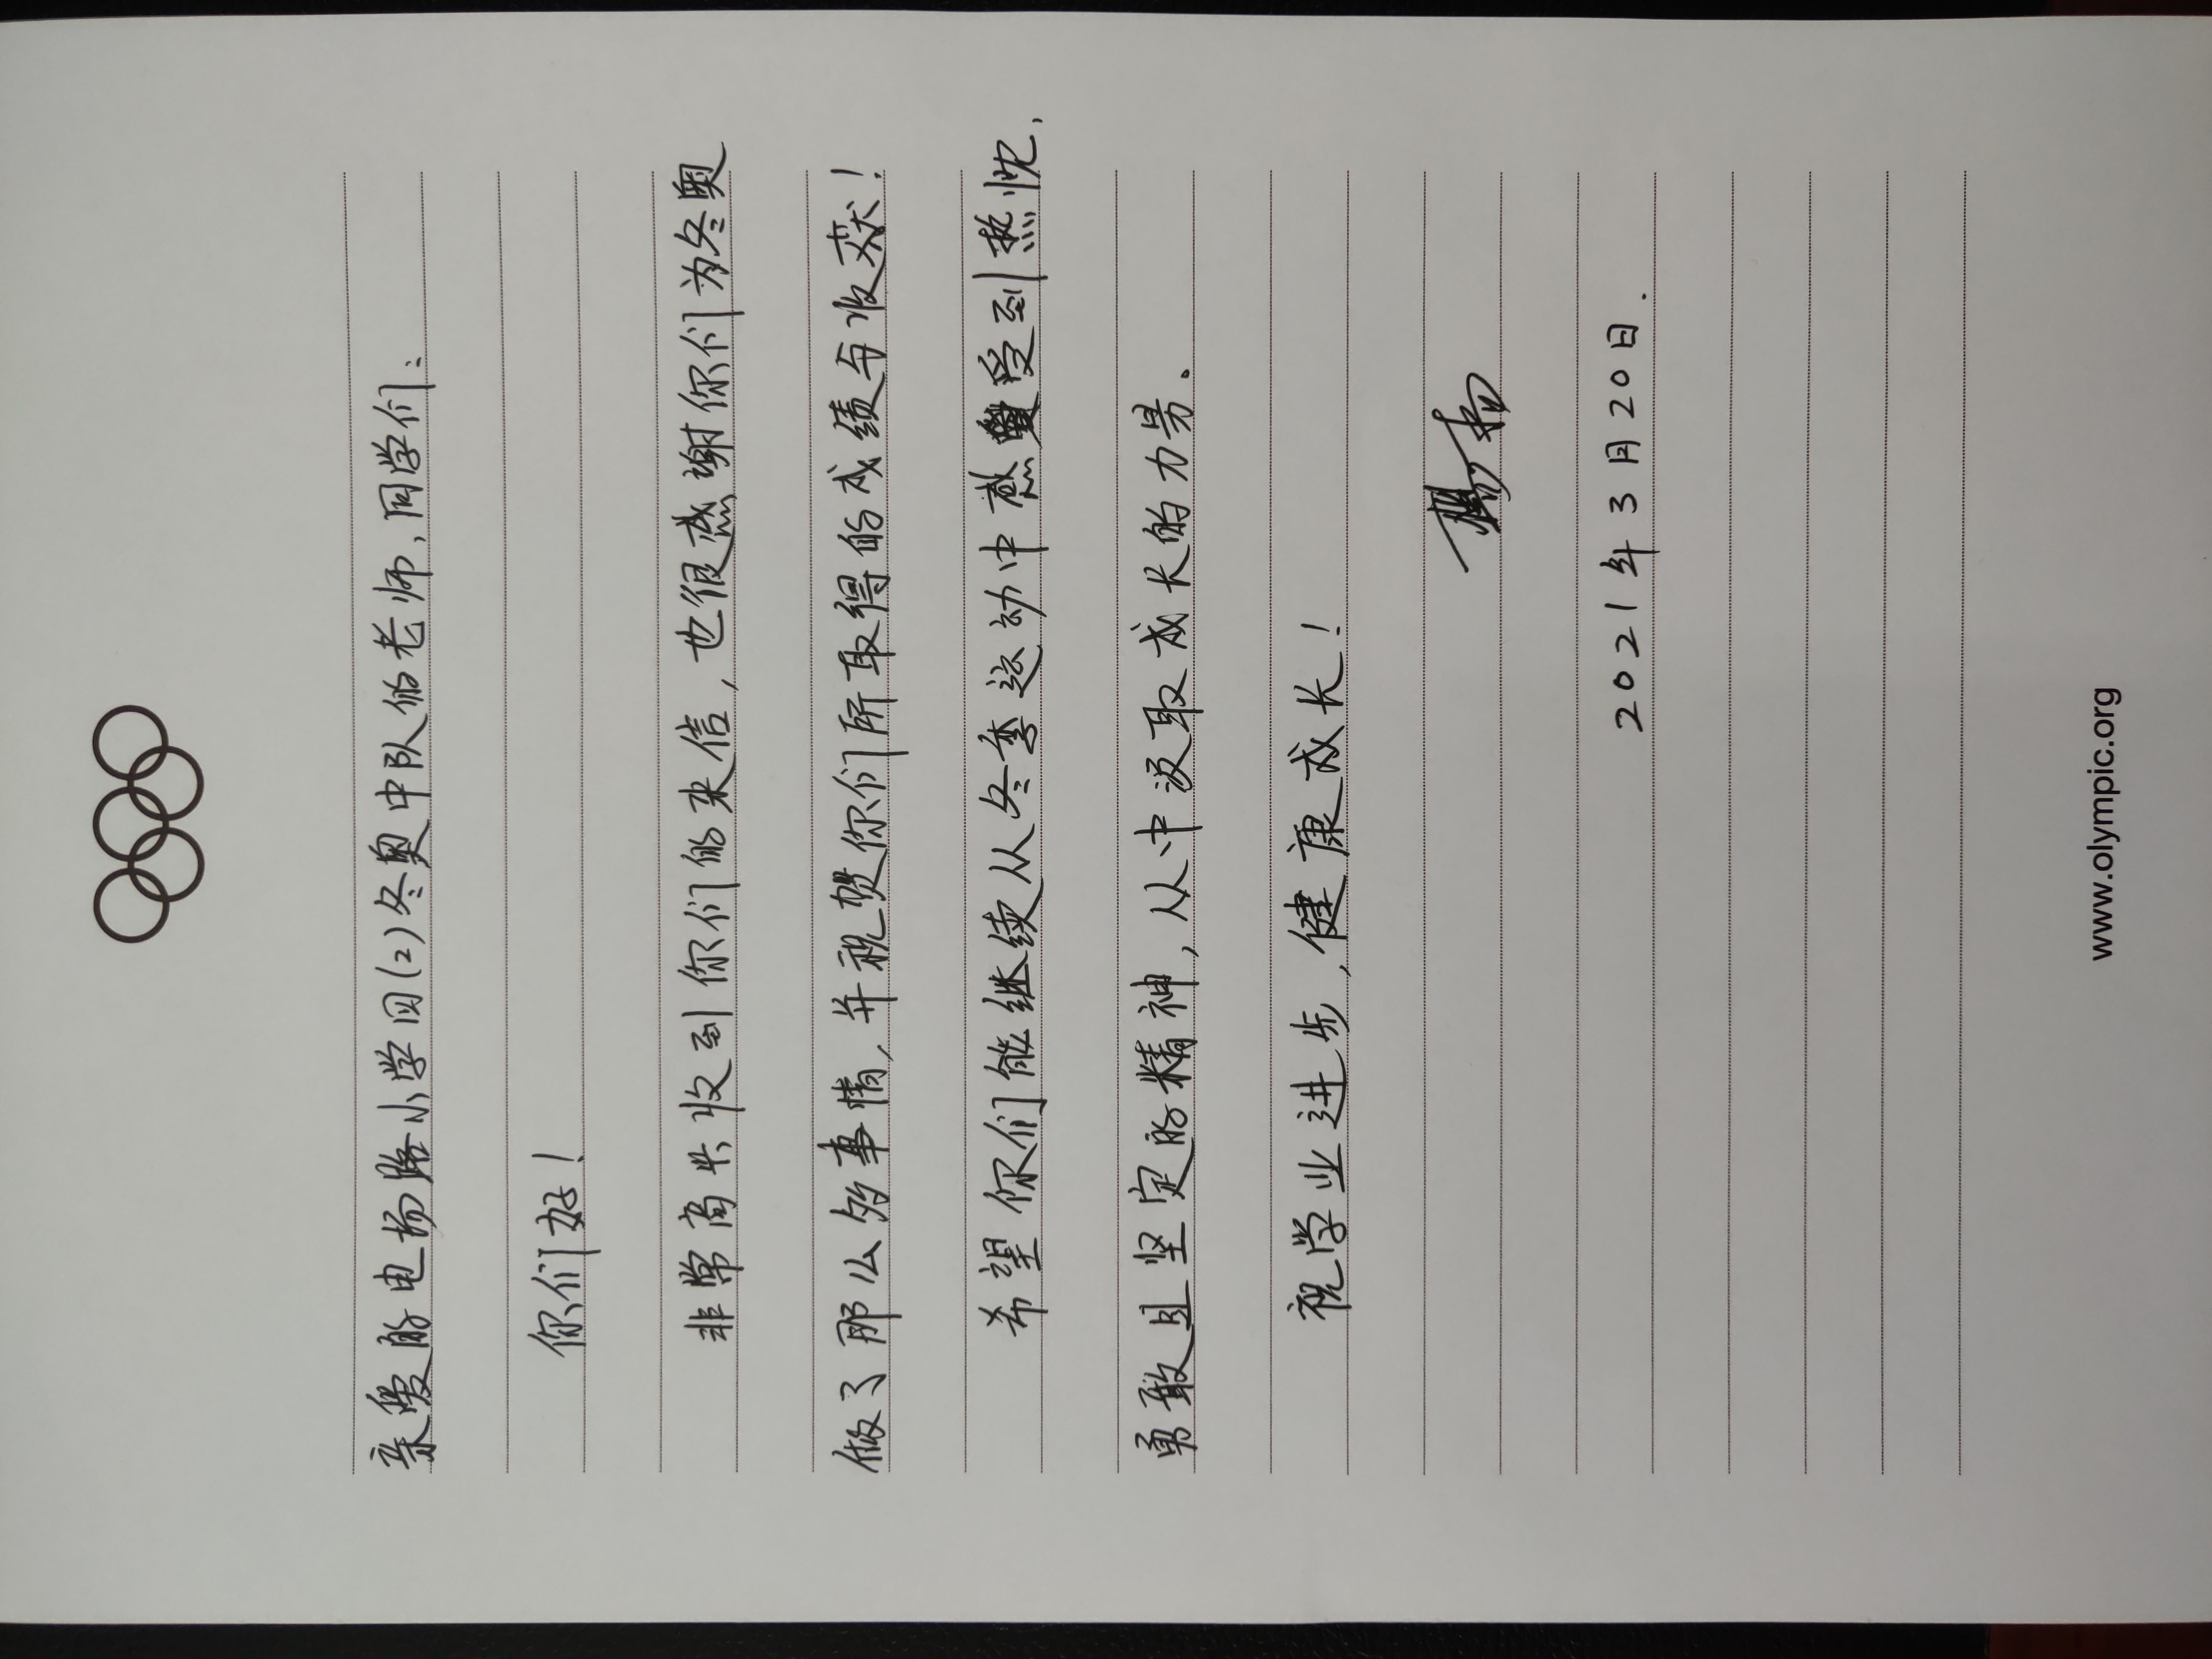 亲爱的电场路小学四(2)冬奥中队的老师、同学们:
你们好!
非常高兴收到你们的来信,也很感谢你们为冬奥
做了那么多事情,并祝贺你们所取得的成绩与收获!
希望你们能继续从冬季运动中感受到热忱、
勇敢且坚定的精神,从中汲取成长的力量。
祝学业进步,健康成长!
杨扬
2021年3月20日.
www.olympic.org